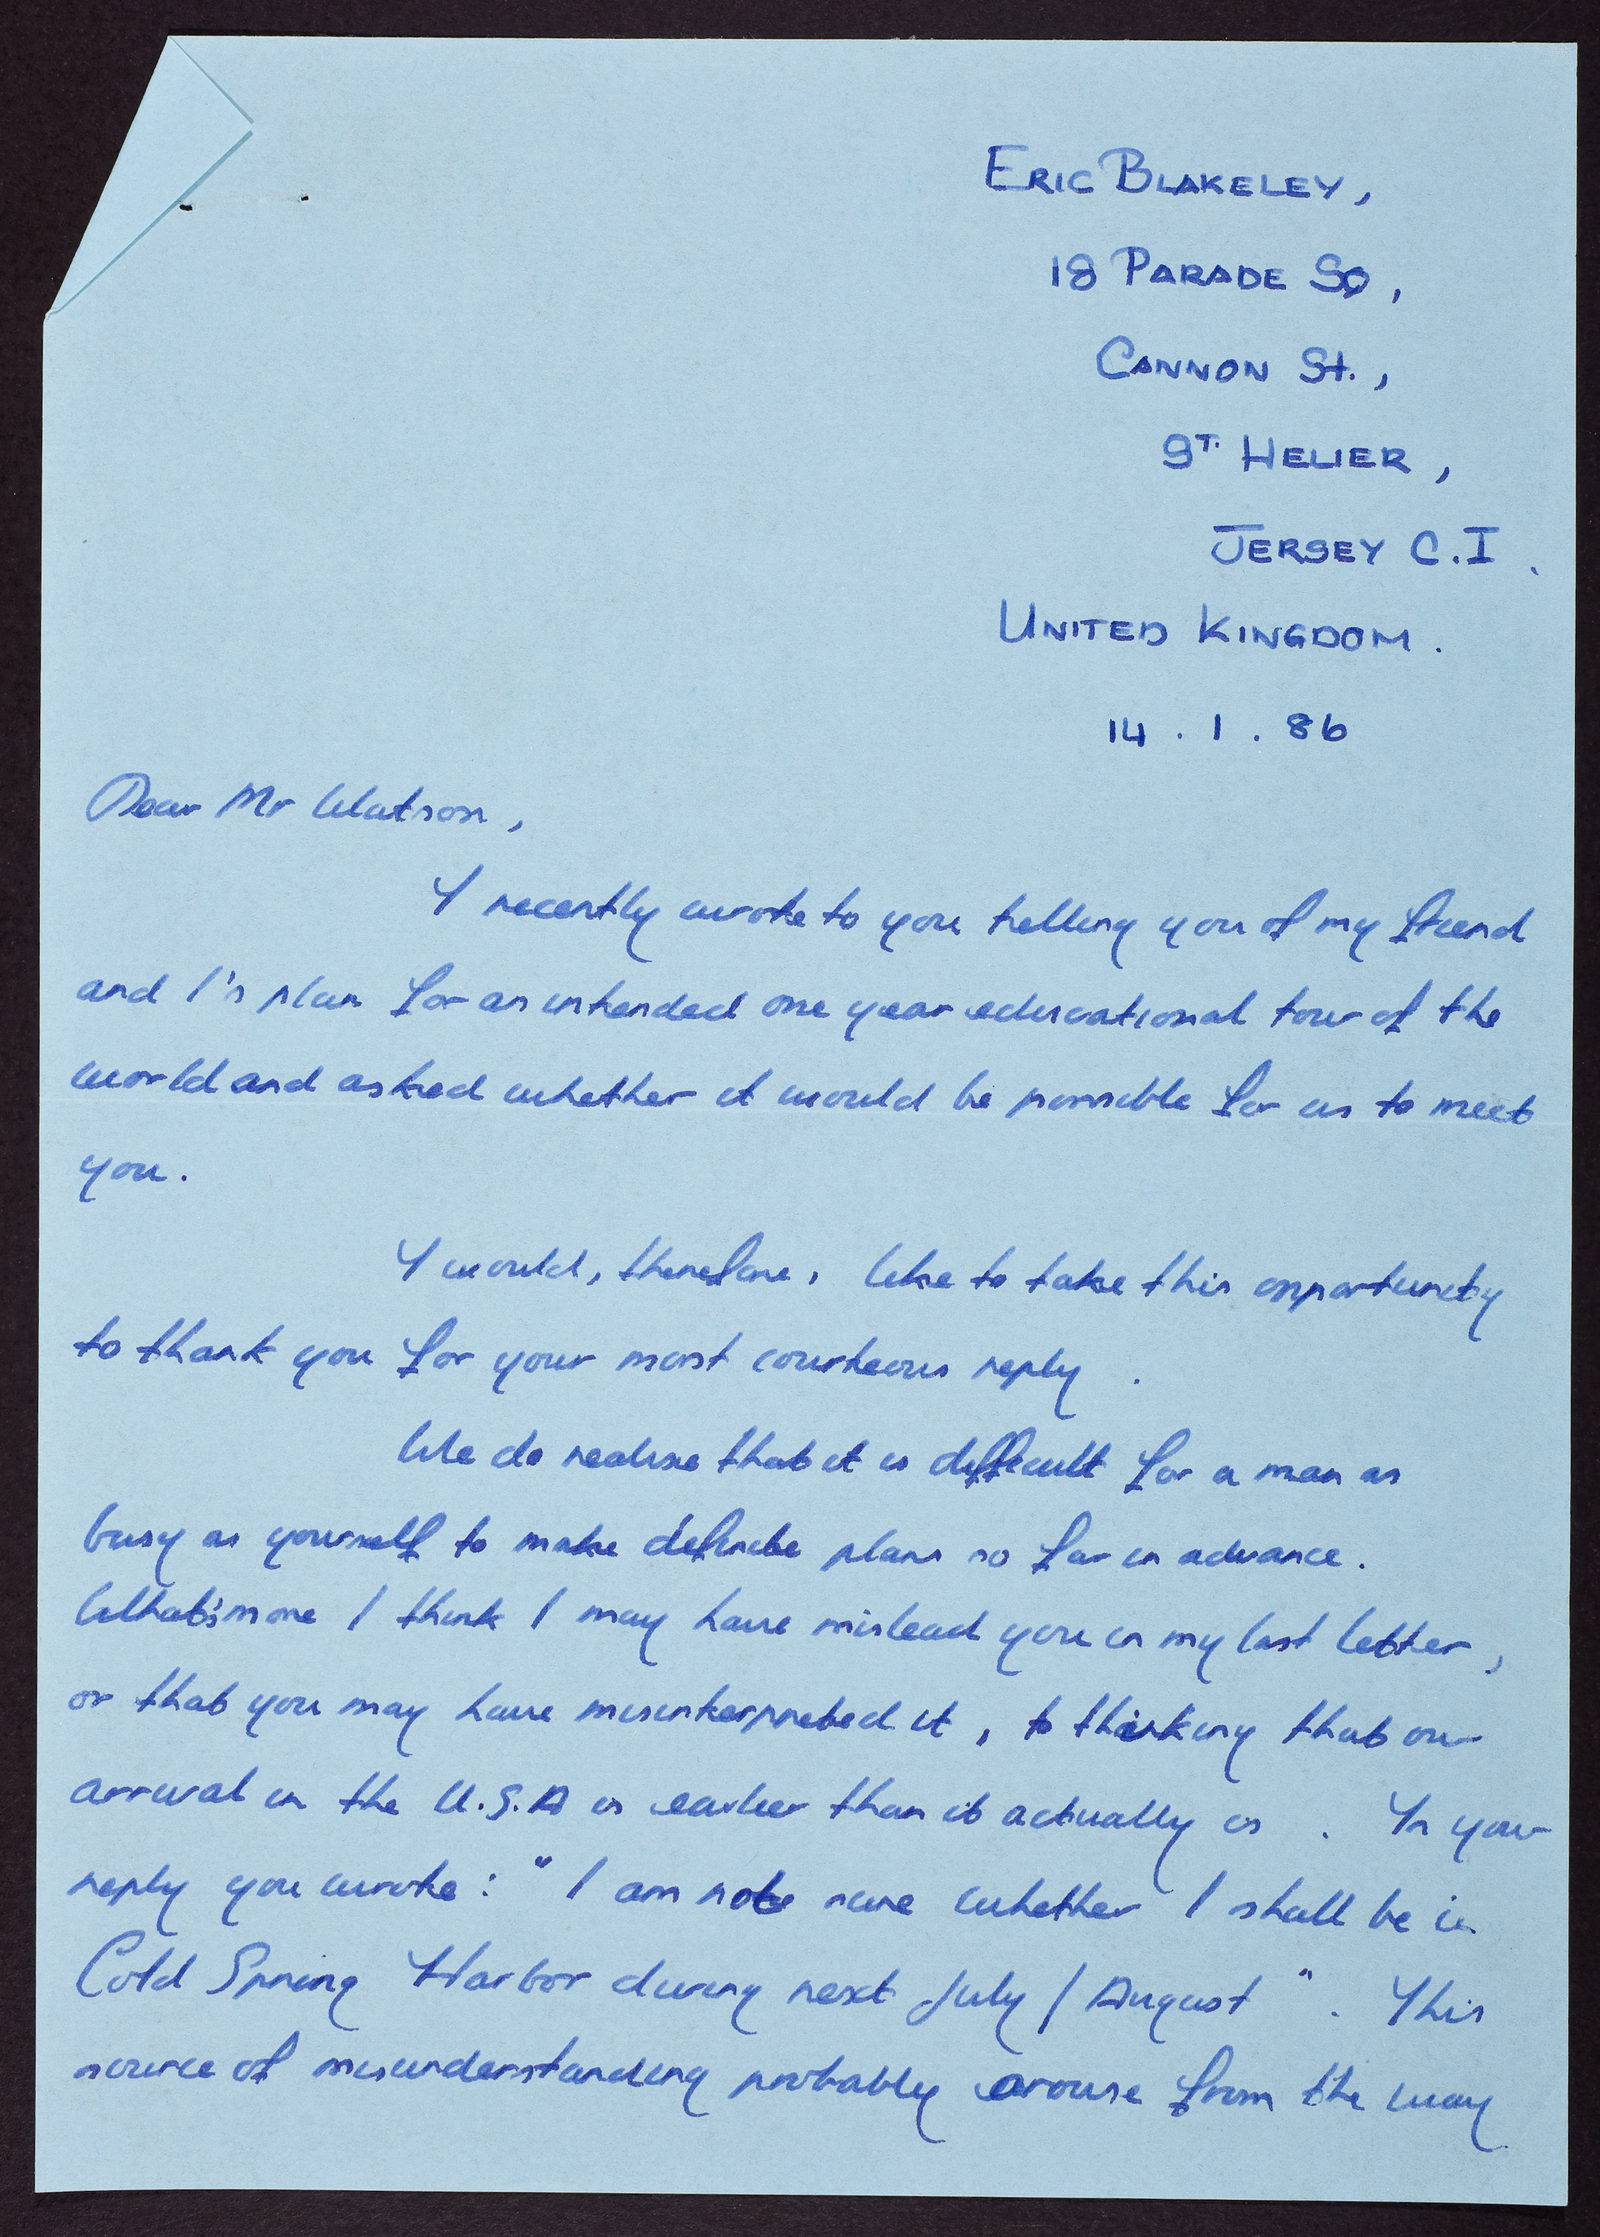 ERIC BLAKELEY,
18 PARADE SQ,
CANNON St.,
ST. HELIER,
JERSEY C.I.
UNITED KINGDOM.
14.1.86
Dear Mr Watson,
I recently wrote to you telling you of my friend
and I's plan for an intended one year educational tour of the
world and asked whether it would be possible for us to meet
you.
I would, therefore, like to take this opportunity
to thank you for your most courteous reply.
We do realise that it is difficult for a man as
busy as yourself to make definite plans so far in advance.
What's more I think I may have mislead you in my last letter,
or that you may have misinterpreted it, to thinking that our
arrival in the U.S.A is earlier than it actually is. In your
reply you wrote: "I am not sure whether I shall be in
Cold Spring Harbor during next July / August". This
source of misunderstanding probably arouse from the way